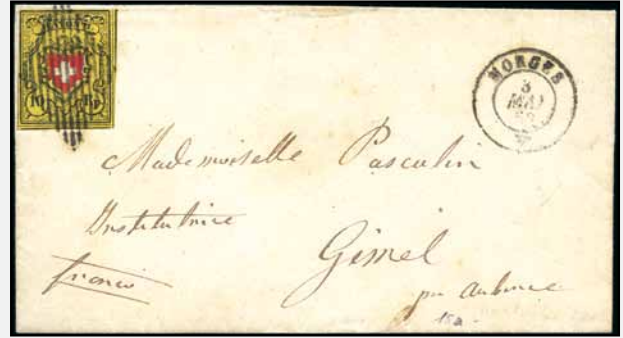 10 Rp.
MORGES
3
MAI
52
Mademoiselle Pascalin
Institutrice
Gimel
franco
par Aubonne
15a.